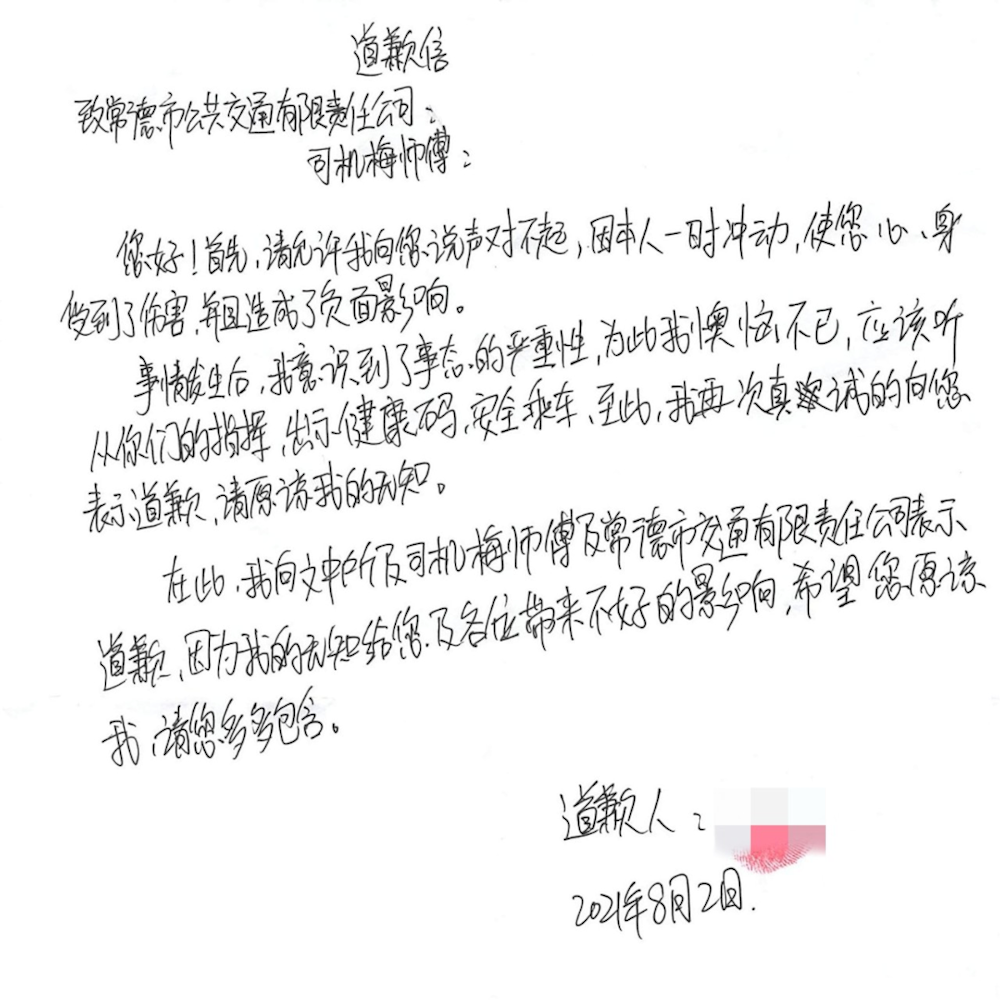 道歉信
致常德市公共交通有限责任公司:
司机梅师傅:
您好!首先,请允许我向您说声对不起,因本人一时冲动,使您心、身
受到了伤害,并且造成了负面影响。
事情发生后,我意识到了事态的严重性,为此我懊恼不已,应该听
从你们的指挥,出示健康码,安全乘车,至此,我再次真诚的向您
表示道歉,请原谅我的无知。
在此,我向文中所及司机梅师傅及常德市交通有限责任公司表示
道歉,因为我的无知给您及各位带来不好的影响,希望您原谅
我,请您多多包含。
道歉人:
2021年8月2日.